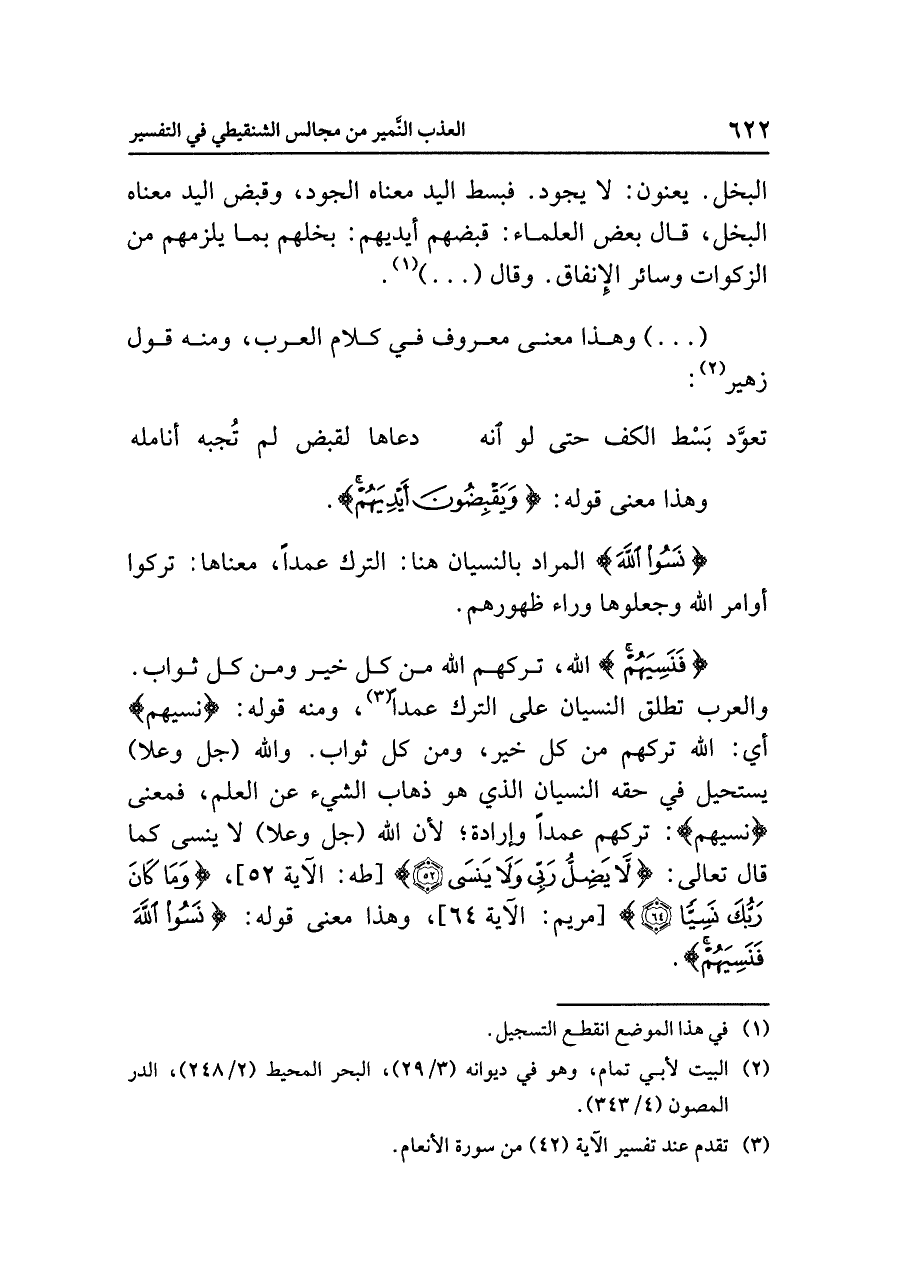 ٦٢٢ العذب النَّمير من مجالس الشنقيطي في التفسير
البخل. يعنون: لا يجود. فبسط اليد معناه الجود، وقبض اليد معناه
البخل، قال بعض العلماء: قبضهم أيديهم: بخلهم بما يلزمهم من
الزكوات وسائر الإنفاق. وقال (...)(١).
(...) وهذا معنى معروف في كلام العرب، ومنه قول
زهير(٢):
تعوَّد بَسْط الكف حتى لو ٱنه دعاها لقبض لم تُجبه أنامله
وهذا معنى قوله: ﴿وَيَقْبِضُونَ أَيْدِيَهُمْۚ﴾.
﴿نَسُوا۟ ٱللَّهَ﴾ المراد بالنسيان هنا: الترك عمداً، معناها: تركوا
أوامر الله وجعلوها وراء ظهورهم.
﴿فَنَسِيَهُمْۚ﴾ الله، تركهم الله من كل خير ومن كل ثواب.
والعرب تطلق النسيان على الترك عمداً(٣)، ومنه قوله: ﴿نسيهم﴾
أي: الله تركهم من كل خير، ومن كل ثواب. والله (جل وعلا)
يستحيل في حقه النسيان الذي هو ذهاب الشيء عن العلم، فمعنى
﴿نسيهم﴾: تركهم عمداً وإرادة؛ لأن الله (جل وعلا) لا ينسى كما
قال تعالى: ﴿لَّا يَضِلُّ رَبِّى وَلَا يَنسَى ۝٥٢﴾ [طه: الآية ٥٢]، ﴿وَمَا كَانَ
رَبُّكَ نَسِيًّا ۝٦٤﴾ [مريم: الآية ٦٤]، وهذا معنى قوله: ﴿نَسُوا۟ ٱللَّهَ
فَنَسِيَهُمْۚ﴾.
(١) في هذا الموضع انقطع التسجيل.
(٢) البيت لأبي تمام، وهو في ديوانه (٢٩/٣)، البحر المحيط (٢٤٨/٢)، الدر
المصون (٣٤٣/٤).
(٣) تقدم عند تفسير الآية (٤٢) من سورة الأنعام.